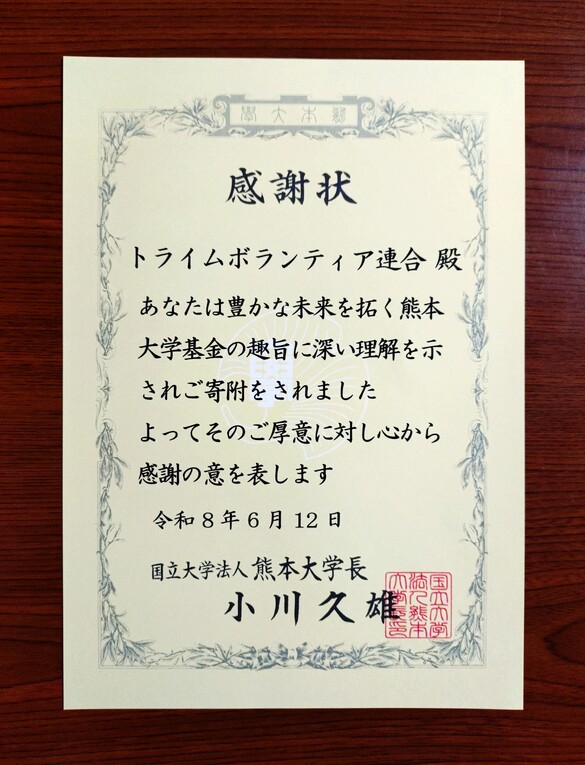 熊本大學
感謝状
トライムボランティア連合 殿
あなたは豊かな未来を拓く熊本
大学基金の趣旨に深い理解を示
されご寄附をされました
よってそのご厚意に対し心から
感謝の意を表します
令和8年6月12日
国立大学法人 熊本大学長
小川久雄
国立大学
法人熊本
大学長印